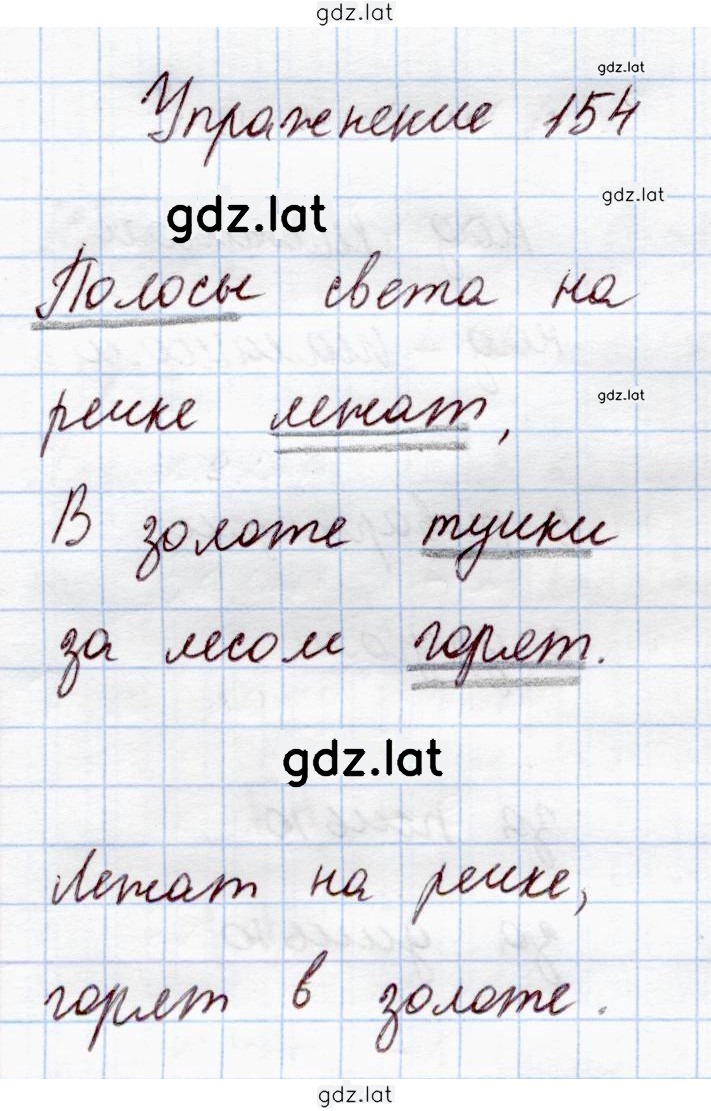 gdz.lat
gdz.lat
Упражнение 154
gdz.lat
gdz.lat
Полосы света на
речке лежат,
gdz.lat
В золоте тучки
за лесом горят.
gdz.lat
Лежат на речке,
горят в золоте.
gdz.lat